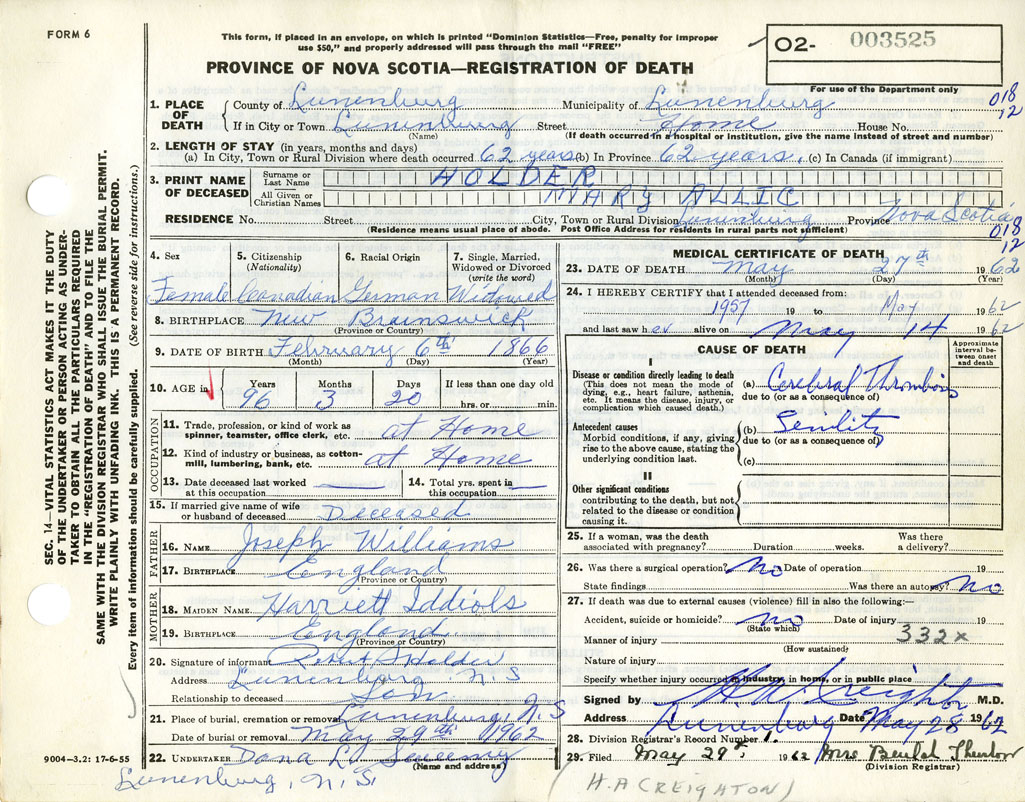 FORM 6
This form, if placed in an envelope, on which is printed "Dominion Statistics—Free, penalty for improper
use $50," and properly addressed will pass through the mail "FREE"
PROVINCE OF NOVA SCOTIA—REGISTRATION OF DEATH
02- 003525
For use of the Department only
018
12
1. PLACE OF DEATH
County of Lunenburg Municipality of Lunenburg
If in City or Town Lunenburg Street Home House No.
(Name) (If death occurred in a hospital or institution, give the name instead of street and number)
2. LENGTH OF STAY (in years, months and days)
(a) In City, Town or Rural Division where death occurred 62 years (b) In Province 62 years. (c) In Canada (if immigrant)
3. PRINT NAME OF DECEASED
Surname or Last Name HOLDER
All Given or Christian Names MARY ALLIC
RESIDENCE No. Street City, Town or Rural Division Lunenburg Province Nova Scotia
(Residence means usual place of abode. Post Office Address for residents in rural parts not sufficient)
018
12
4. Sex 5. Citizenship (Nationality) 6. Racial Origin 7. Single, Married, Widowed or Divorced (write the word)
Female Canadian German Widowed
8. BIRTHPLACE New Brainswick
(Province or Country)
9. DATE OF BIRTH February 6th 1866
(Month) (Day) (Year)
10. AGE in Years Months Days If less than one day old
96 3 20 hrs. or min.
OCCUPATION
11. Trade, profession, or kind of work as spinner, teamster, office clerk, etc. at Home
12. Kind of industry or business, as cotton-mill, lumbering, bank, etc. at Home
13. Date deceased last worked at this occupation 14. Total yrs. spent in this occupation
15. If married give name of wife or husband of deceased Deceased
FATHER
16. NAME Joseph Williams
17. BIRTHPLACE England
(Province or Country)
MOTHER
18. MAIDEN NAME Harriett Iddiols
19. BIRTHPLACE England
(Province or Country)
20. Signature of informant Holder
Address Lunenburg N.S
Relationship to deceased Son
21. Place of burial, cremation or removal Lunenburg, N.S
Date of burial or removal May 29th 1962
22. UNDERTAKER Dana L.
(Name and address)
Lunenburg, N.S.
9004-3.2: 17-6-55
MEDICAL CERTIFICATE OF DEATH
23. DATE OF DEATH May 27th 1962
(Month) (Day) (Year)
24. I HEREBY CERTIFY that I attended deceased from:
1957 19 to May 1962
and last saw her alive on May 14 1962
CAUSE OF DEATH
Approximate interval between onset and death
I
Disease or condition directly leading to death
(This does not mean the mode of dying, e.g., heart failure, asthenia, etc. It means the disease, injury, or complication which caused death.)
(a) Cerebral Thrombosis
due to (or as a consequence of)
Antecedent causes
Morbid conditions, if any, giving rise to the above cause, stating the underlying condition last.
(b) Senility
due to (or as a consequence of)
(c)
II
Other significant conditions
contributing to the death, but not related to the disease or condition causing it.
25. If a woman, was the death associated with pregnancy? Duration weeks. Was there a delivery?
26. Was there a surgical operation? No Date of operation 19
State findings Was there an autopsy? No
27. If death was due to external causes (violence) fill in also the following:—
Accident, suicide or homicide? no Date of injury 19
(State which)
Manner of injury 332x
(How sustained)
Nature of injury
Specify whether injury occurred in industry, in home, or in public place
Signed by H.A. Creighton M.D.
Address Lunenburg Date May 28 1962
28. Division Registrar's Record Number 1.
29. Filed May 29th 1962 Mrs Beulah
(Division Registrar)
(H.A CREIGHTON)
SEC. 14—VITAL STATISTICS ACT MAKES IT THE DUTY
OF THE UNDERTAKER OR PERSON ACTING AS UNDER-
TAKER TO OBTAIN ALL THE PARTICULARS REQUIRED
IN THE "REGISTRATION OF DEATH" AND TO FILE THE
SAME WITH THE DIVISION REGISTRAR WHO SHALL ISSUE THE BURIAL PERMIT.
WRITE PLAINLY WITH UNFADING INK. THIS IS A PERMANENT RECORD.
Every item of information should be carefully supplied. (See reverse side for instructions.)